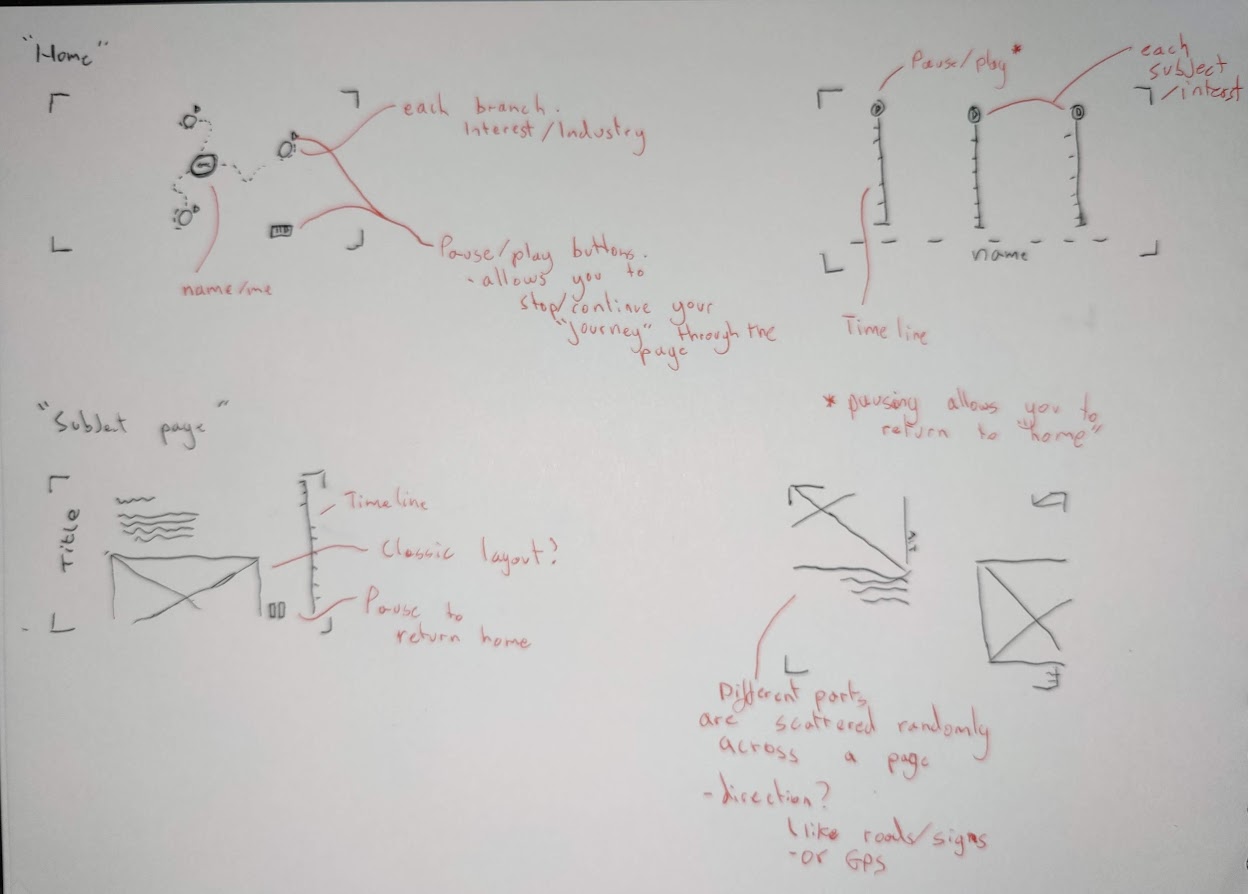 "Home"
each branch.
Interest/Industry
name/me
Pause/play buttons.
- allows you to
stop/continue your
"journey" through the
page
Pause/play*
each
subject
/interest
name
Timeline
* pausing allows you to
return to "home"
"Subject page"
Title
Timeline
Classic layout?
Pause to
return home
Different parts
are scattered randomly
across a page
- direction?
like roads/signs
- or GPS